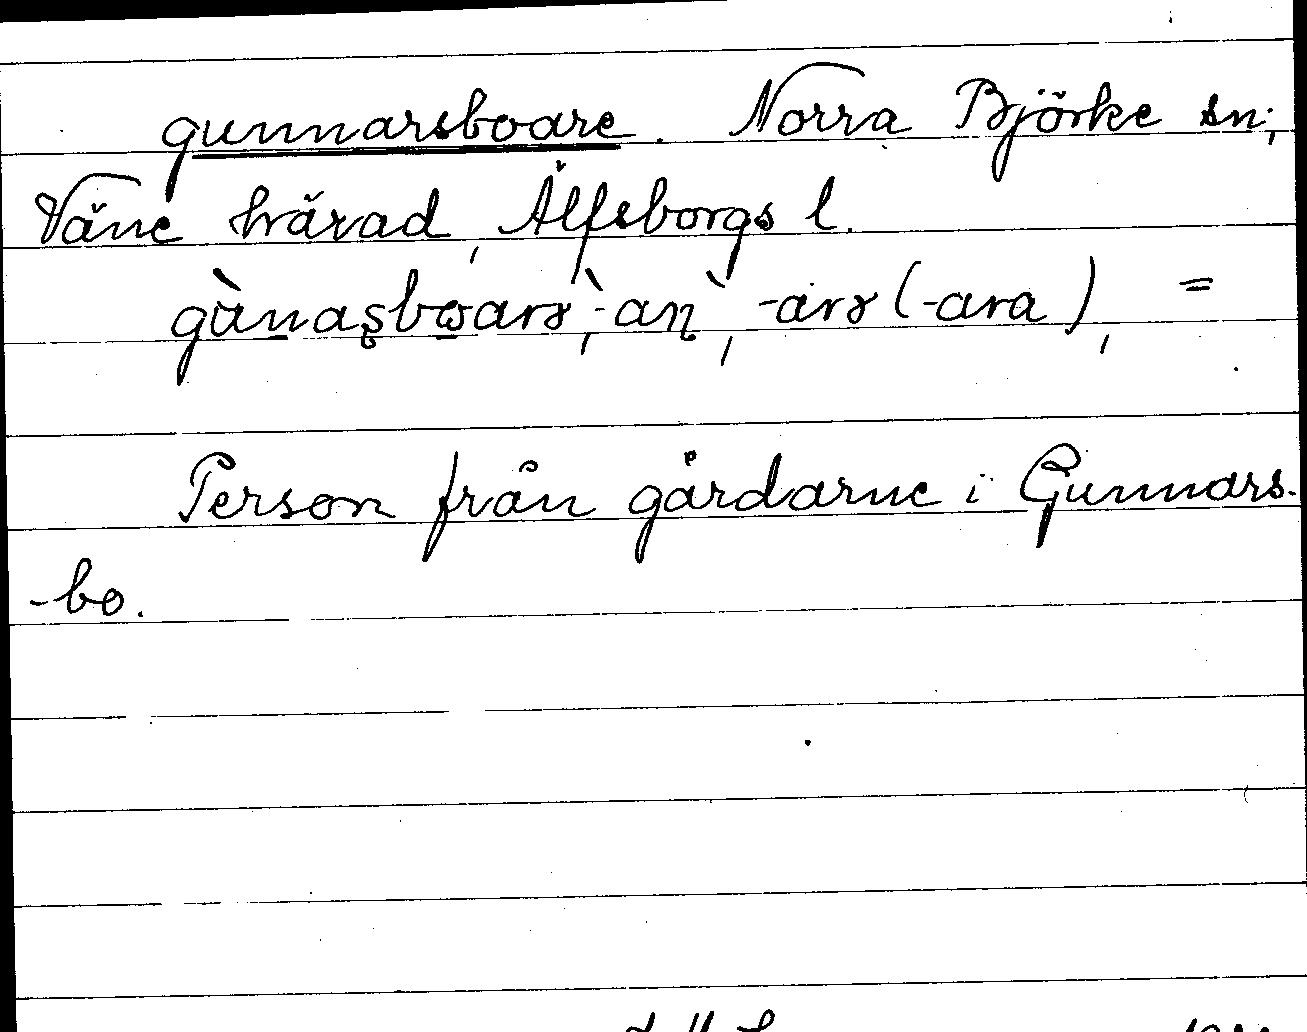 gunnarsboare. Norra Björke sn;
Väne härad, Älfsborgs l.
Person från gårdarne i Gunnars-
-bo.